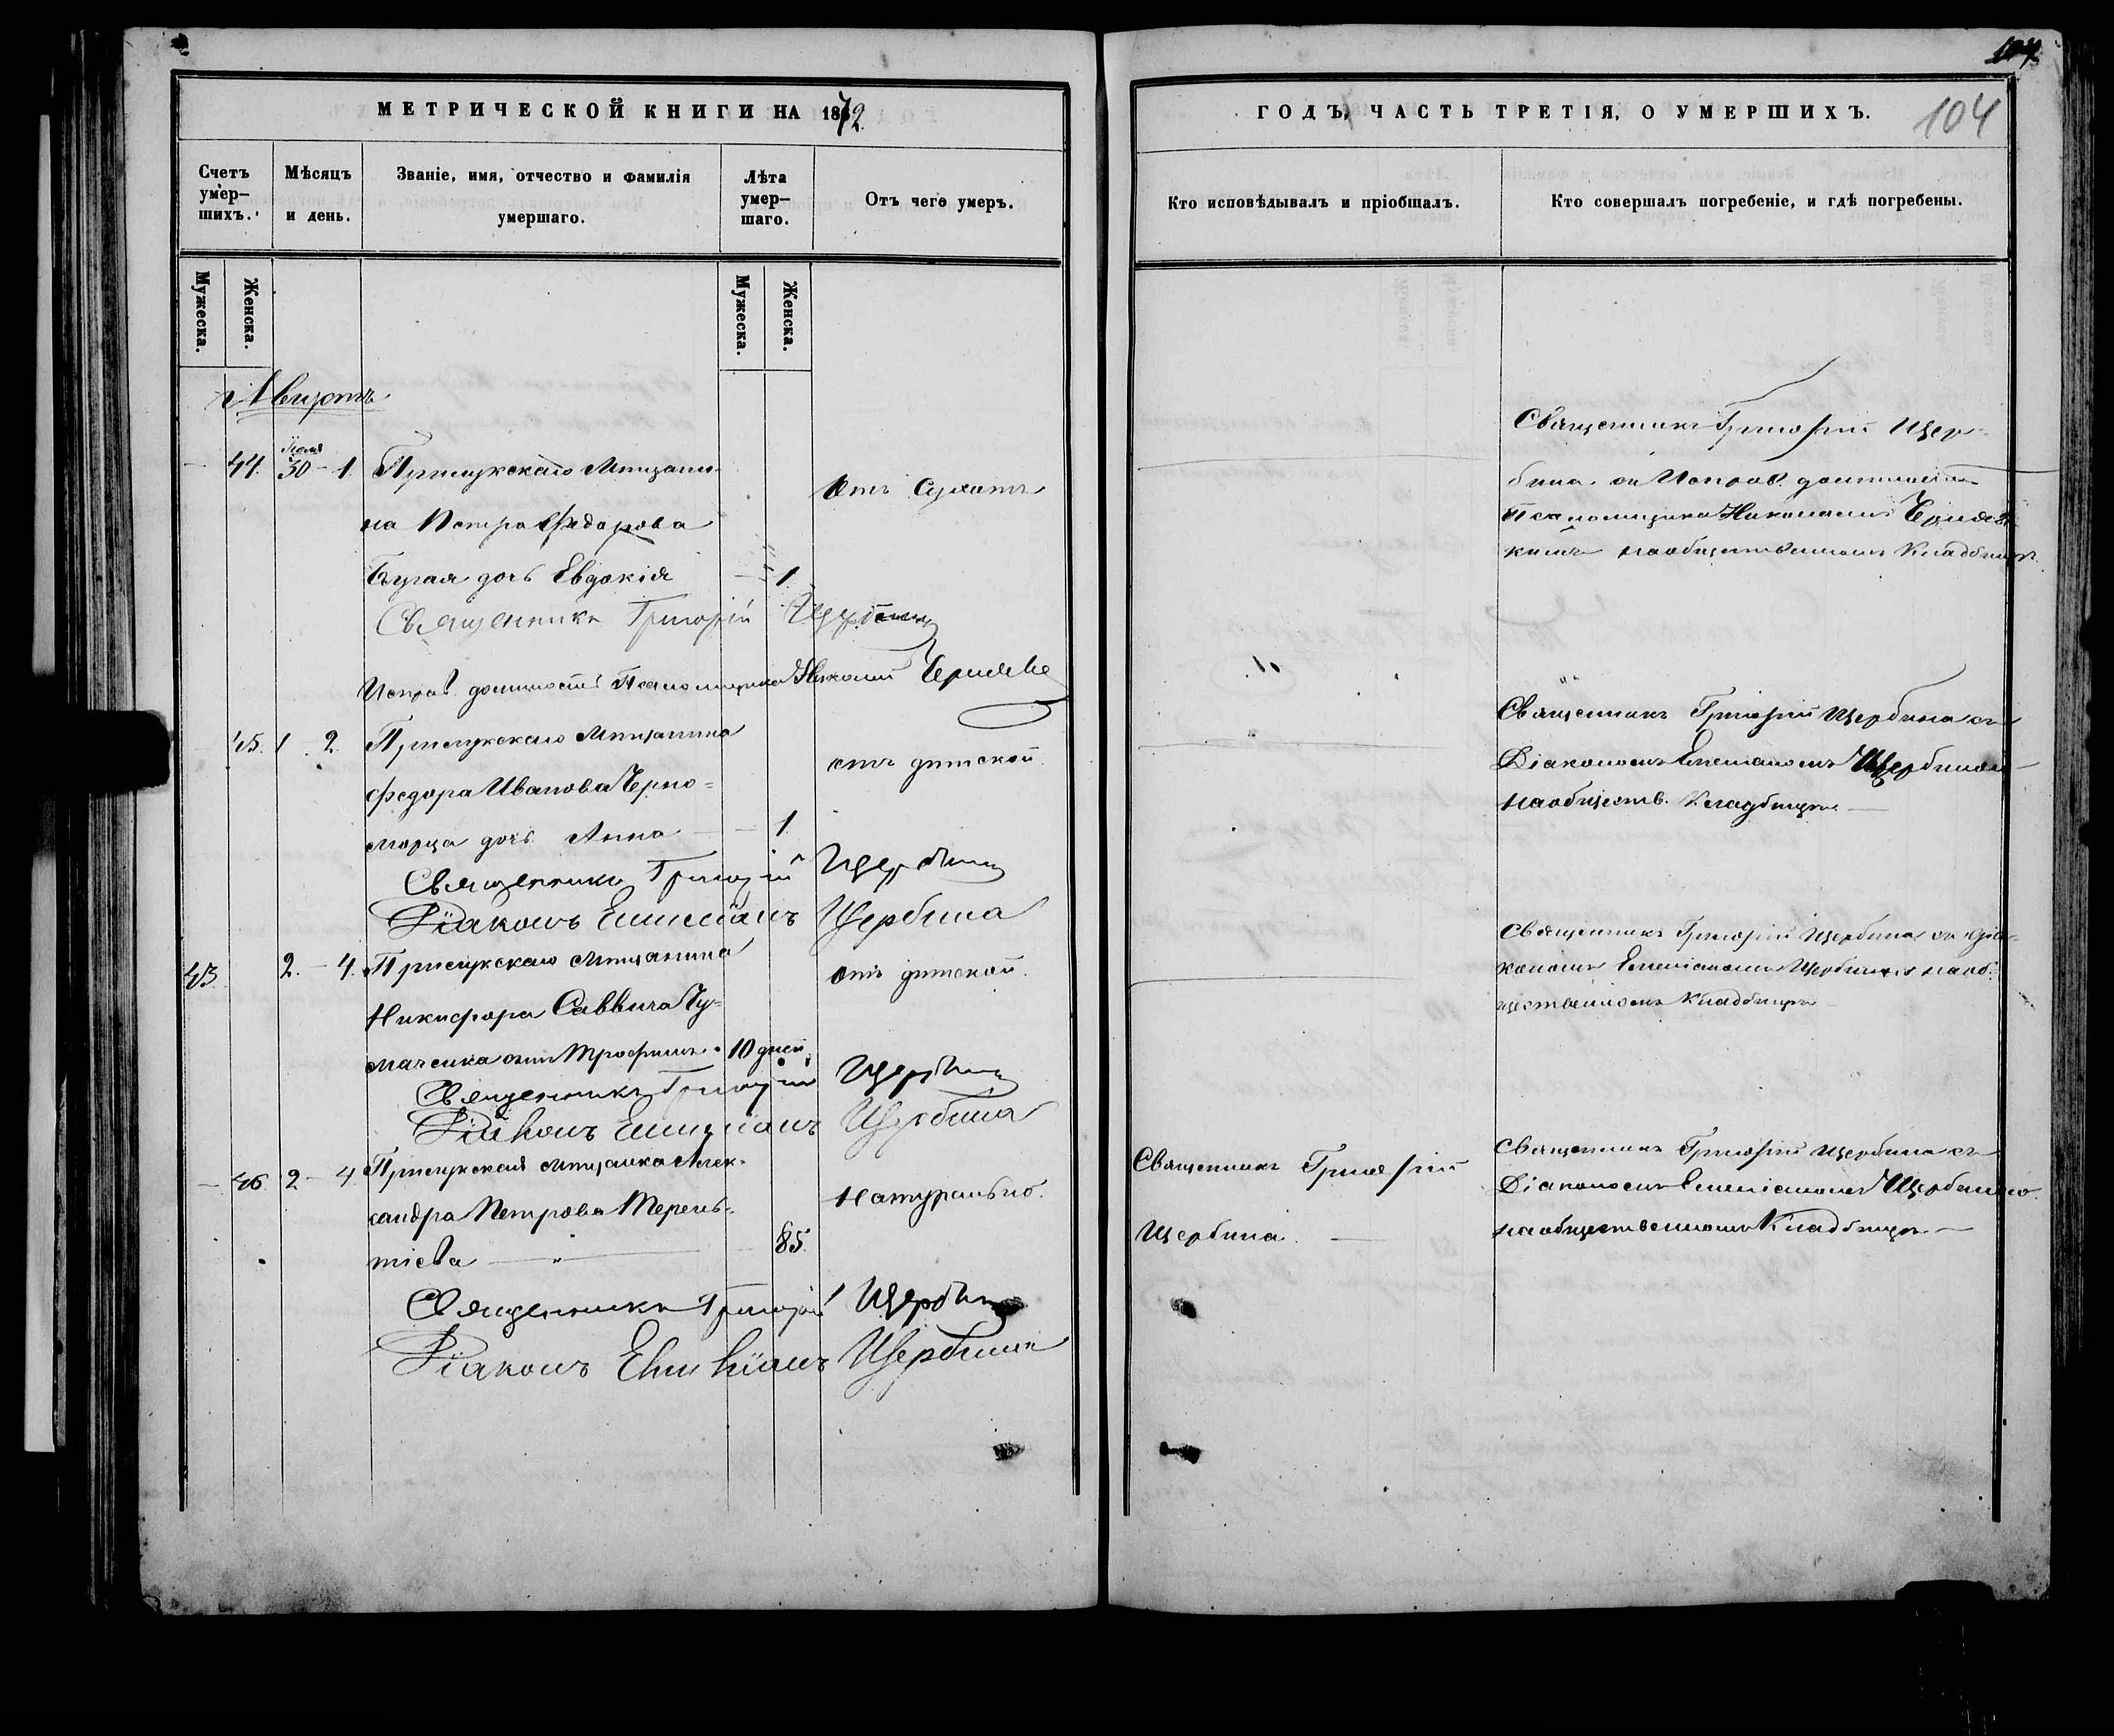 МЕТРИЧЕСКОЙ КНИГИ НА 1872
Счетъ умер-шихъ.
Мѣсяцъ и день.
Званіе, имя, отчество и фамилія умершаго.
Лѣта умер-шаго.
Отъ чего умеръ.
Мужеска.
Женска.
Мужеска.
Женска.
Августъ
44. Іюля 30 - 1. Прилукскаго Мѣщани-
на Петра Федорова
Бугая дочь Евдокія 1.
Отъ Сухотъ
Священникъ Григорій Щербина
Исправ. должность Псаломщика Николай
45. 1. 2. Прилукскаго Мѣщанина
Федора Иванова Черно=
морца дочь Анна 1.
отъ дѣтской.
Священникъ Григорій Щербина
Діаконъ Щербина
43. 2. - 4. Прилукскаго Мѣщанина
Никифора Саввича Чу=
маченка сынъ Трофимъ. 10 дней.
отъ дѣтской.
Священникъ Григорій Щербина
Діаконъ Щербина
46. 2 - 4. Прилукская мѣщанка Алек-
сандра Петрова Терень-
тіева 85.
Натурально.
Священникъ Григорій Щербина
Діаконъ Щербина
104
ГОДЪ, ЧАСТЬ ТРЕТІЯ, О УМЕРШИХЪ.
104
Кто исповѣдывалъ и пріобщалъ.
Кто совершалъ погребеніе, и гдѣ погребены.
Священникъ Григорій Щер-
бина съ Исправ. должность
Псаломщика Николаемъ
на общественномъ Кладбищѣ.
Священникъ Григорій Щербина съ
Діакономъ Щербиною
на обществ. Кладбищѣ.
Священникъ Григорій Щербина съ Діа-
кономъ Щербиною на об-
щественномъ Кладбищѣ
Священникъ Григорій
Щербина.
Священникъ Григорій Щербина съ
Діакономъ Щербиною
на общественномъ Кладбищѣ